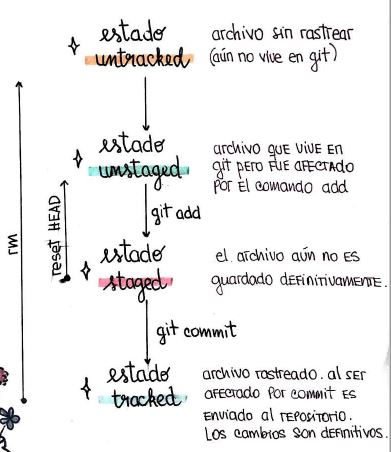 estado
untracked
archivo sin rastrear
(aún no vive en git)
estado
unstaged
archivo que vive en
git pero fue afectado
por el comando add
git add
reset HEAD
rm
estado
staged
el archivo aún no es
guardado definitivamente.
git commit
estado
tracked
archivo rastreado. al ser
afectado por commit es
enviado al repositorio.
Los cambios son definitivos.